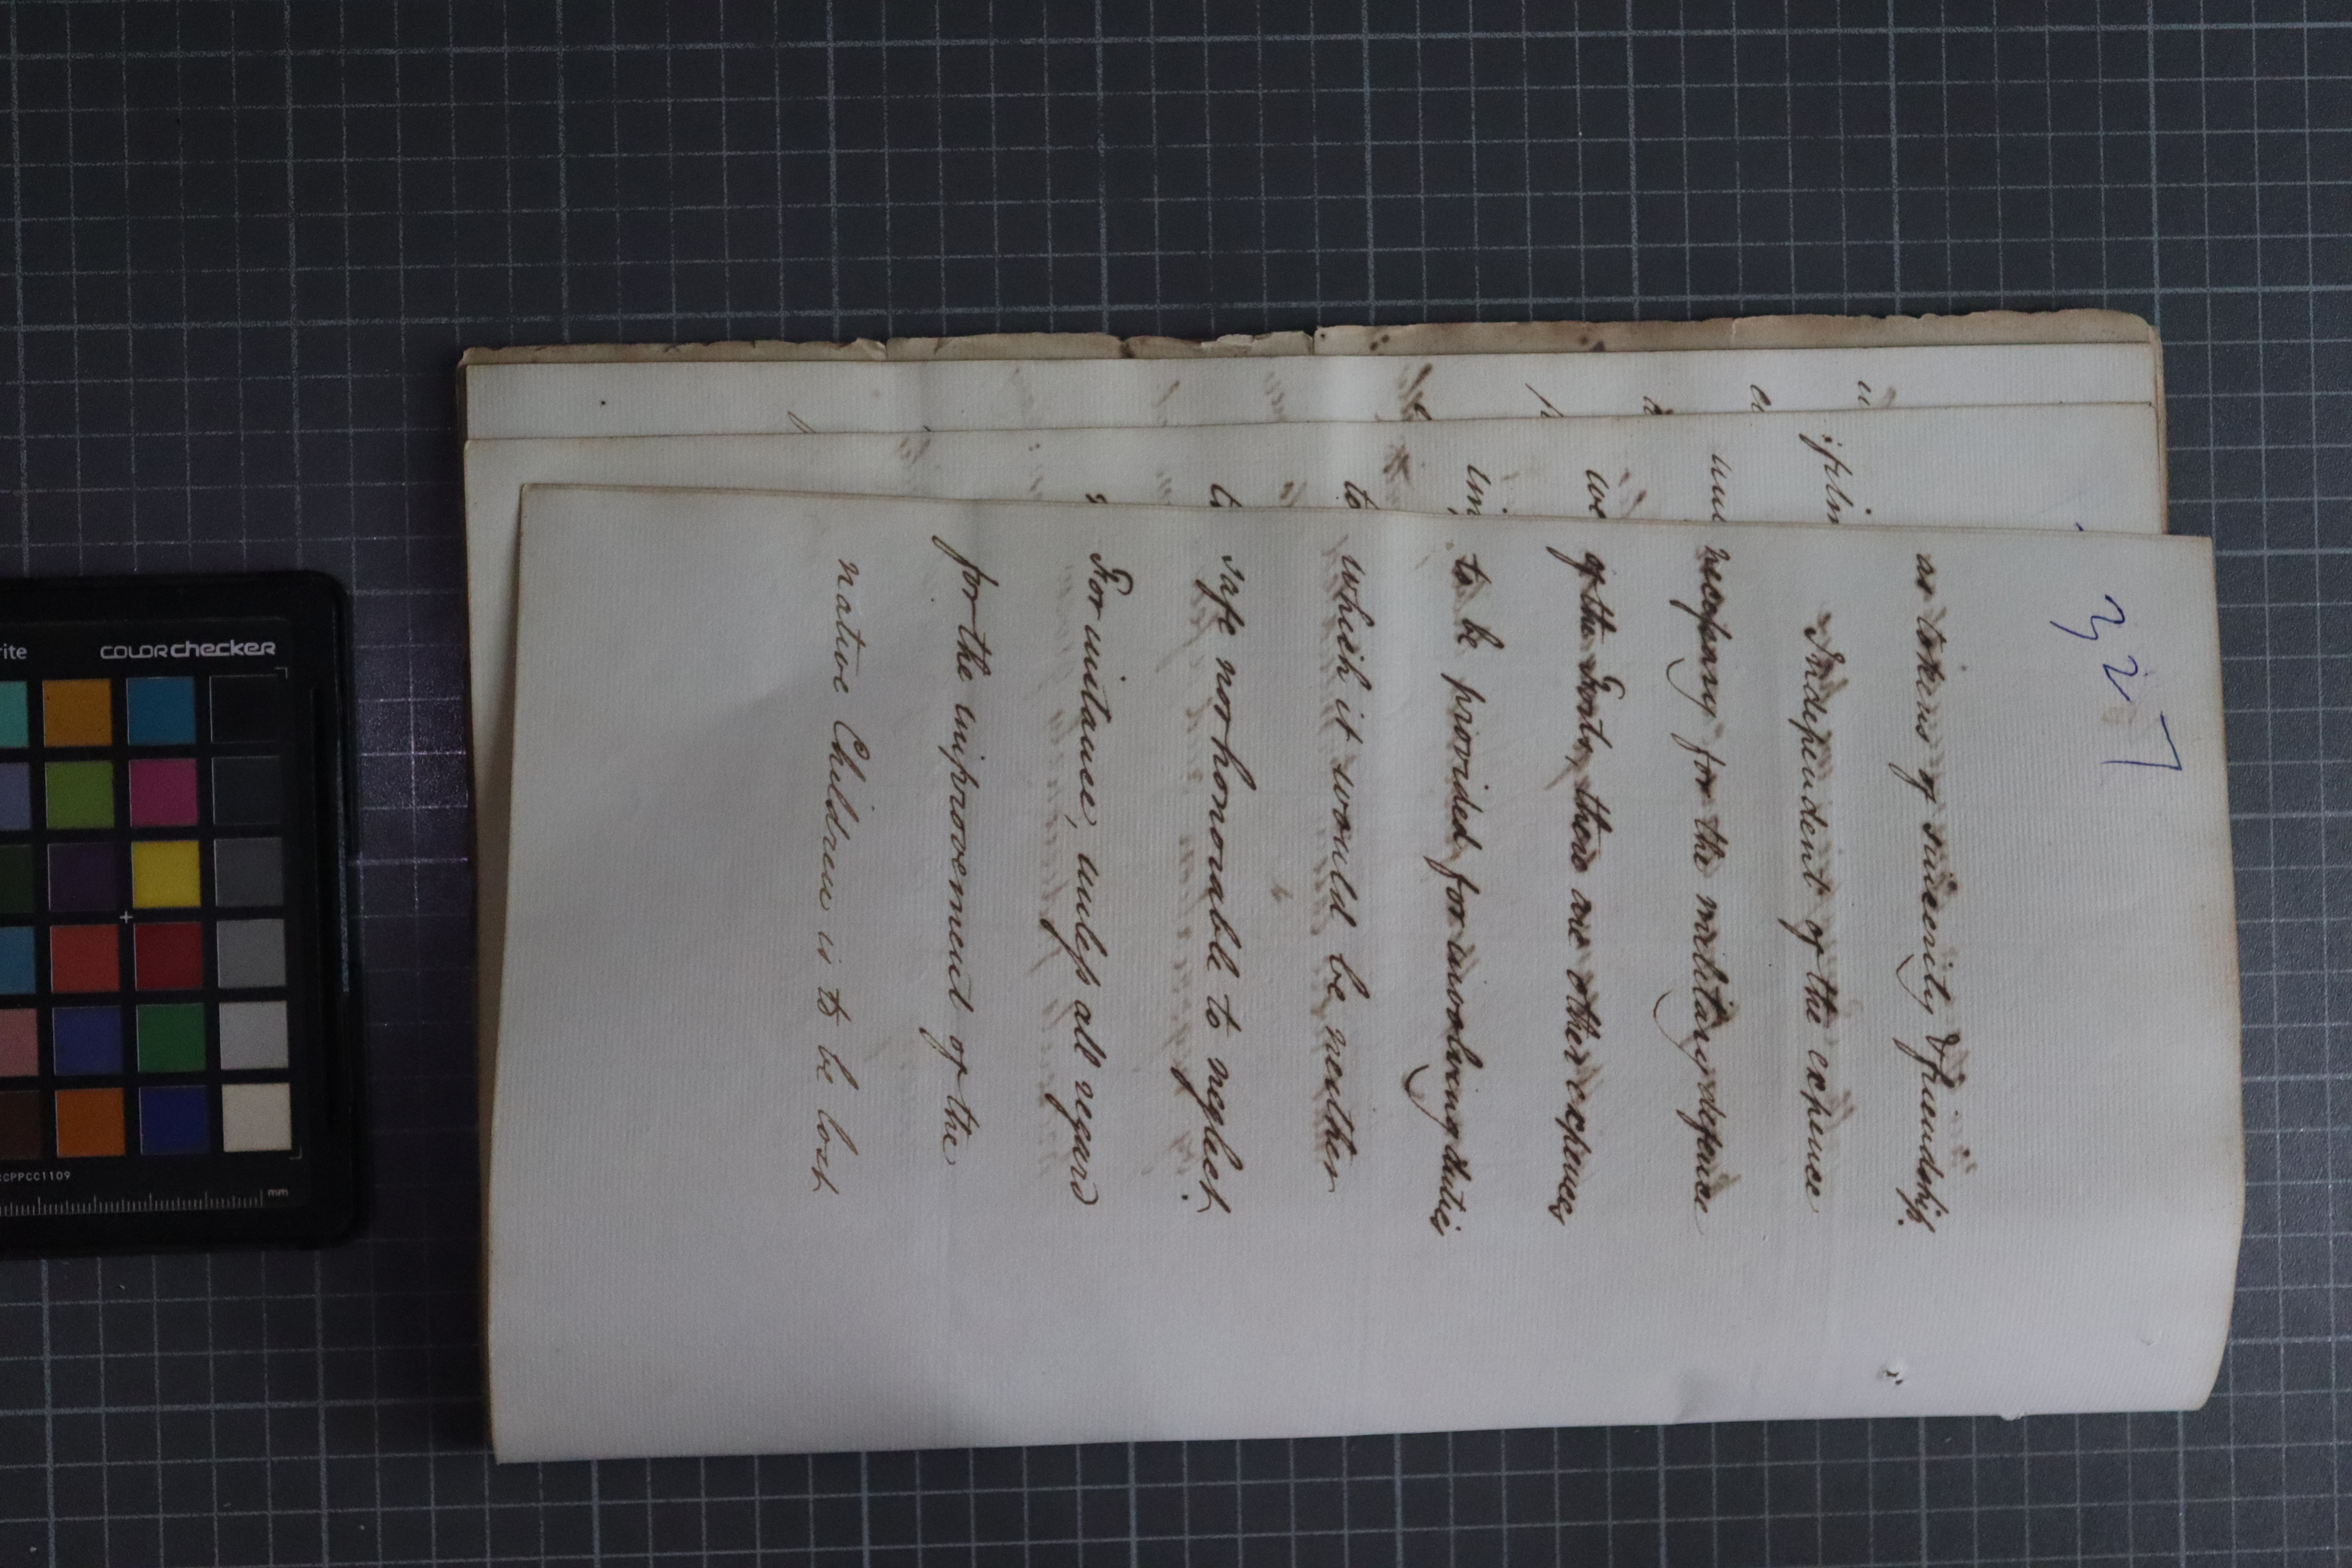 327
as tokens of sincerity & friendship.
Independent of the expence
necessary for the military defence
of the Forts, there are other expences
to be provided for involving duties
which it would be neither
safe nor honorable to neglect.
For instance, unless all regard
for the improvement of the
native Children is to be lost
we
to
colorchecker
mm